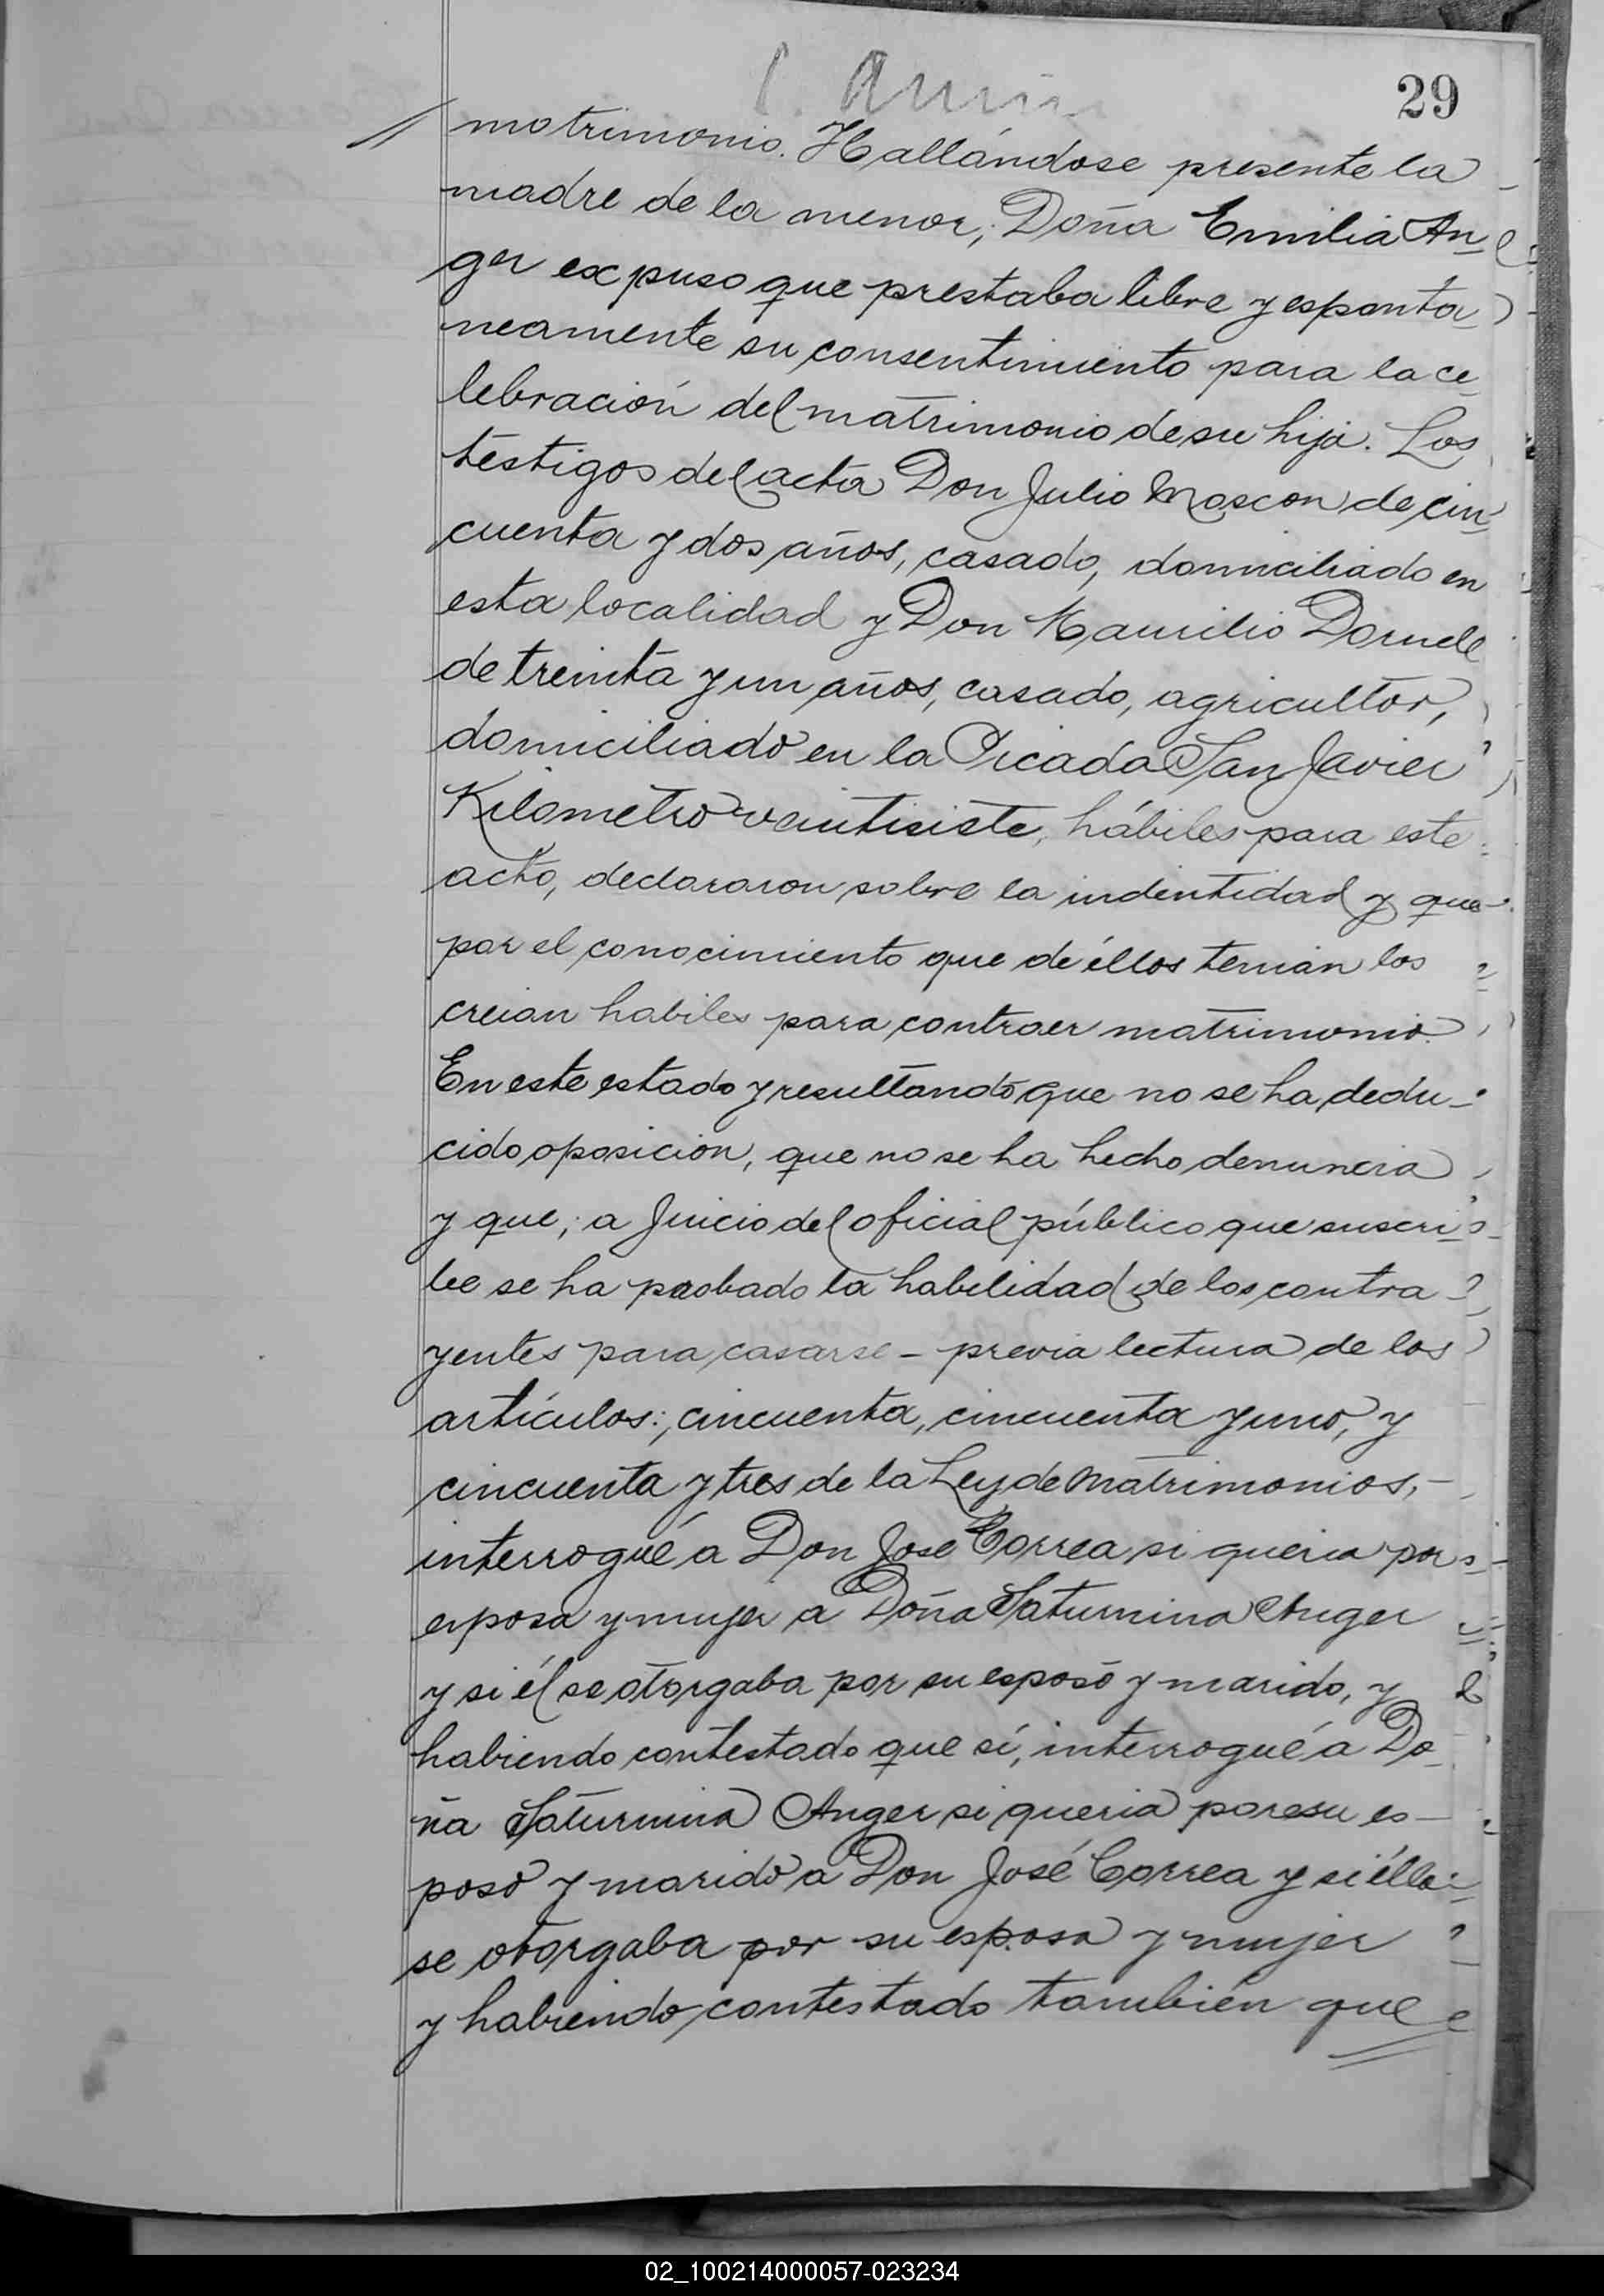 29
matrimonio. Hallándose presente la
madre de la menor, Doña Emilia An
ger expuso que prestaba libre y esponta
neamente su consentimiento para la ce
lebración del matrimonio de su hija. Los
testigos del acta Don Julio Moscon de cin
cuenta y dos años, casado, domiciliado en
esta localidad y Don Maurilio Dornell
de treinta y un años, casado, agricultor,
domiciliado en la Picada San Javier
Kilometro veintisiste, hábiles para este
acto, declararon sobre la indentidad y que
por el conocimiento que de éllos tenian los
creian habiles para contraer matrimonio.
En este estado y resultando que no se ha dedu-
cido oposicion, que no se ha hecho denuncia
y que, a Juicio del oficial público que suscri
be se ha probado la habilidad de los contra
yentes para casarse - previa lectura de los
artículos: cincuenta, cincuenta y uno, y
cincuenta y tres de la Ley de Matrimonios,-
interrogué a Don Jose Correa si queria por
esposa y mujer a Doña Saturnina Anger
y si él se otorgaba por su esposo y marido, y
habiendo contestado que sí, interrogué a Do
ña Saturnina Anger si queria por su es-
poso y marido a Don José Correa y si élla
se otorgaba por su esposa y mujer
y habiendo contestado también que
02_100214000057-023234